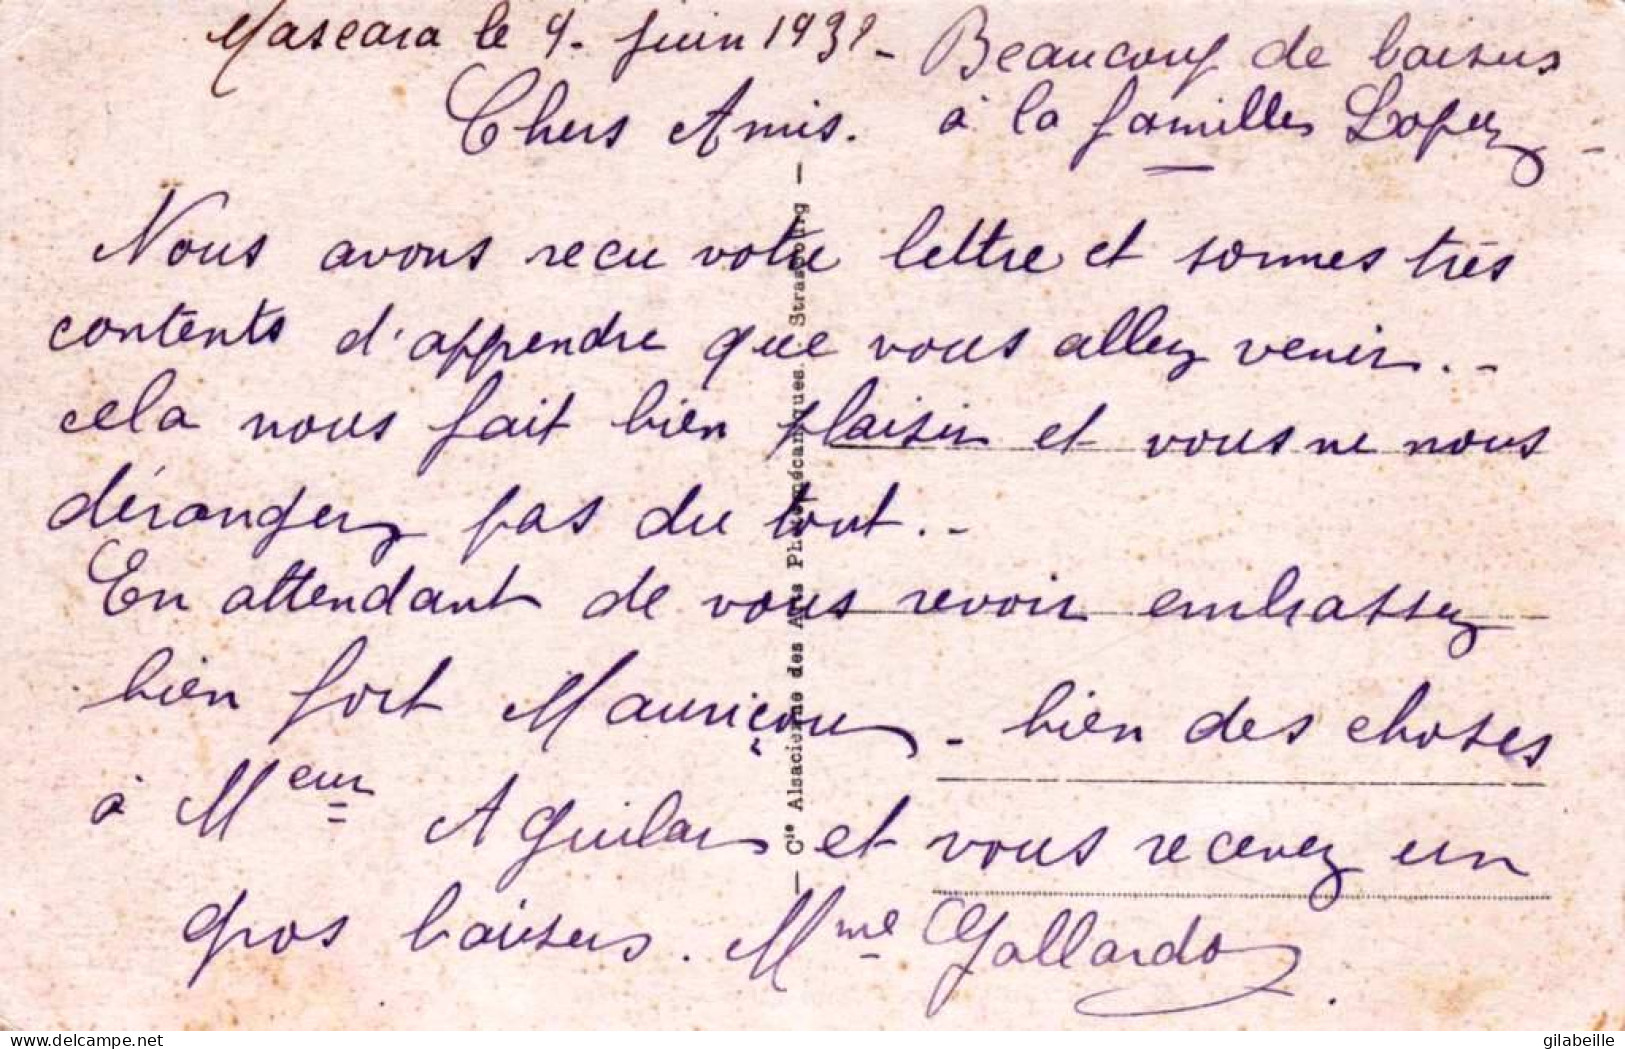 Mascara le 9. Juin 1932 -
Beaucoup de baisers
à la familles Lopez -
Chers Amis.
Nous avons recu votre lettre et sommes très
contents d'apprendre que vous allez venir. -
cela nous fait bien plaisir et vous ne nous
dérangez pas du tout. -
En attendant de vous revoir embrassez
bien fort Mauriçou - bien des choses
à Meur Aguilar et vous recevez un
gros baisers. Mme Gallardo.
— Cie Alsacienne des Arts Photomécaniques. Strasbourg —
www.delcampe.net
gilabeille